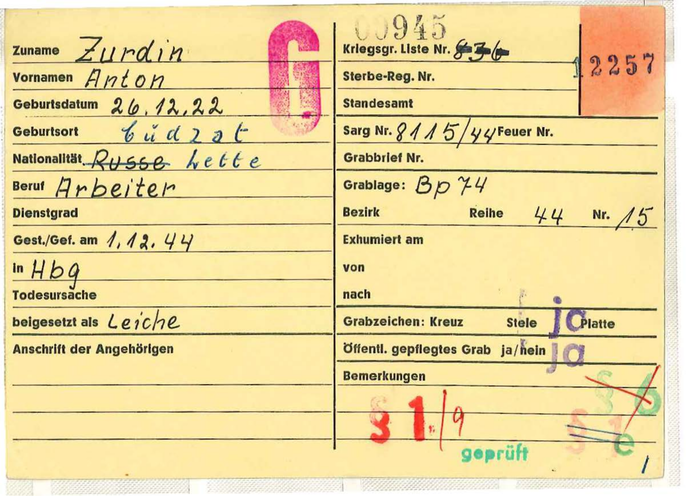 Zuname Zurdin
Vornamen Anton
Geburtsdatum 26.12.22
Geburtsort Cüdzat
Nationalität Russe Lette
Beruf Arbeiter
Dienstgrad
Gest./Gef. am 1.12.44
in Hbg
Todesursache
beigesetzt als Leiche
Anschrift der Angehörigen
G
00945
Kriegsgr. Liste Nr. 836
12257
Sterbe-Reg. Nr.
Standesamt
Sarg Nr. 8115/44 Feuer Nr.
Grabbrief Nr.
Grablage: Bp 74
Bezirk Reihe 44 Nr. 15
Exhumiert am
von
nach
Grabzeichen: Kreuz Stele ja Platte
Öffentl. gepflegtes Grab ja/nein ja
Bemerkungen
§ 6
§ 1./9
§ 1e
geprüft
1